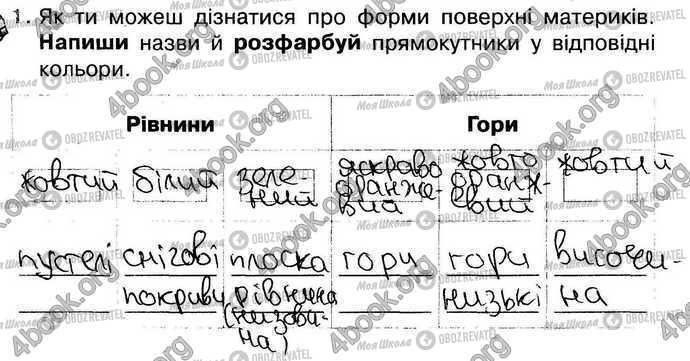 1. Як ти можеш дізнатися про форми поверхні материків.
Напиши назви й розфарбуй прямокутники у відповідні
кольори.
Рівнини Гори
жовтий білий зеле-
ний яскраво
оранже-
вий жовто
оранж-
евий жовтий
пустелі снігові
покриви плоска
рівнина
(низови-
на) гори гори
низькі височи-
на
4book.org
Моя Школа
OBOZREVATEL